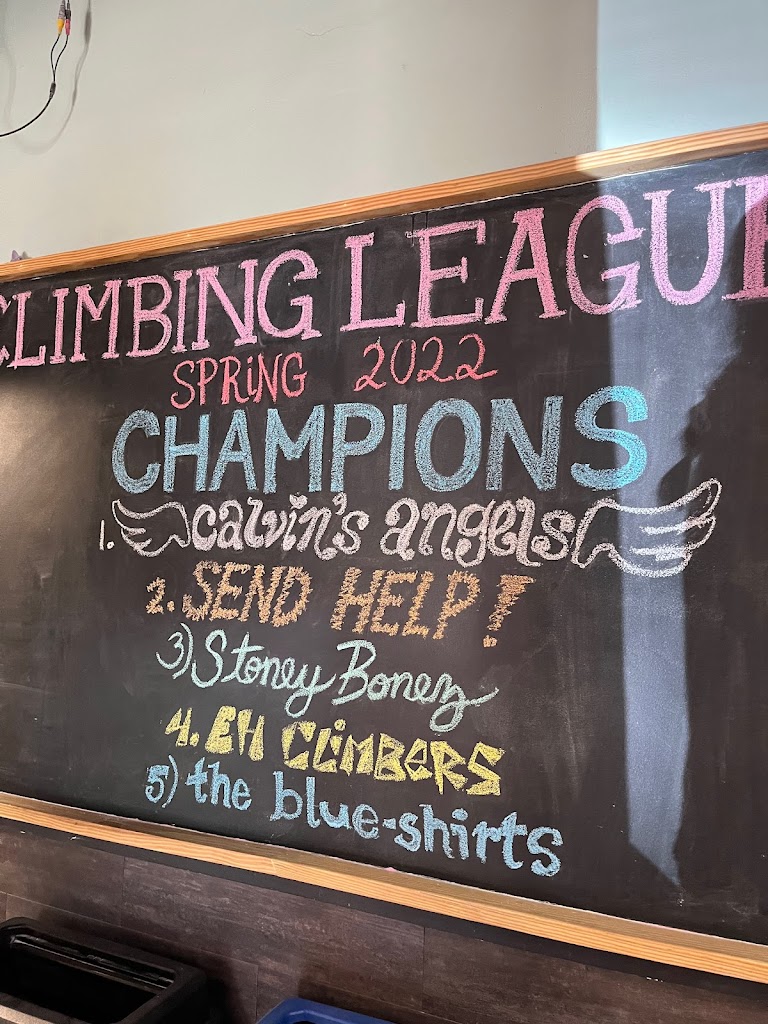 CLIMBING LEAGUE
SPRiNG 2022
CHAMPIONS
1. calvin's angels
2. SEND HELP!
3) Stoney Bonez
4. EH CLiMBERS
5) the blue-shirts